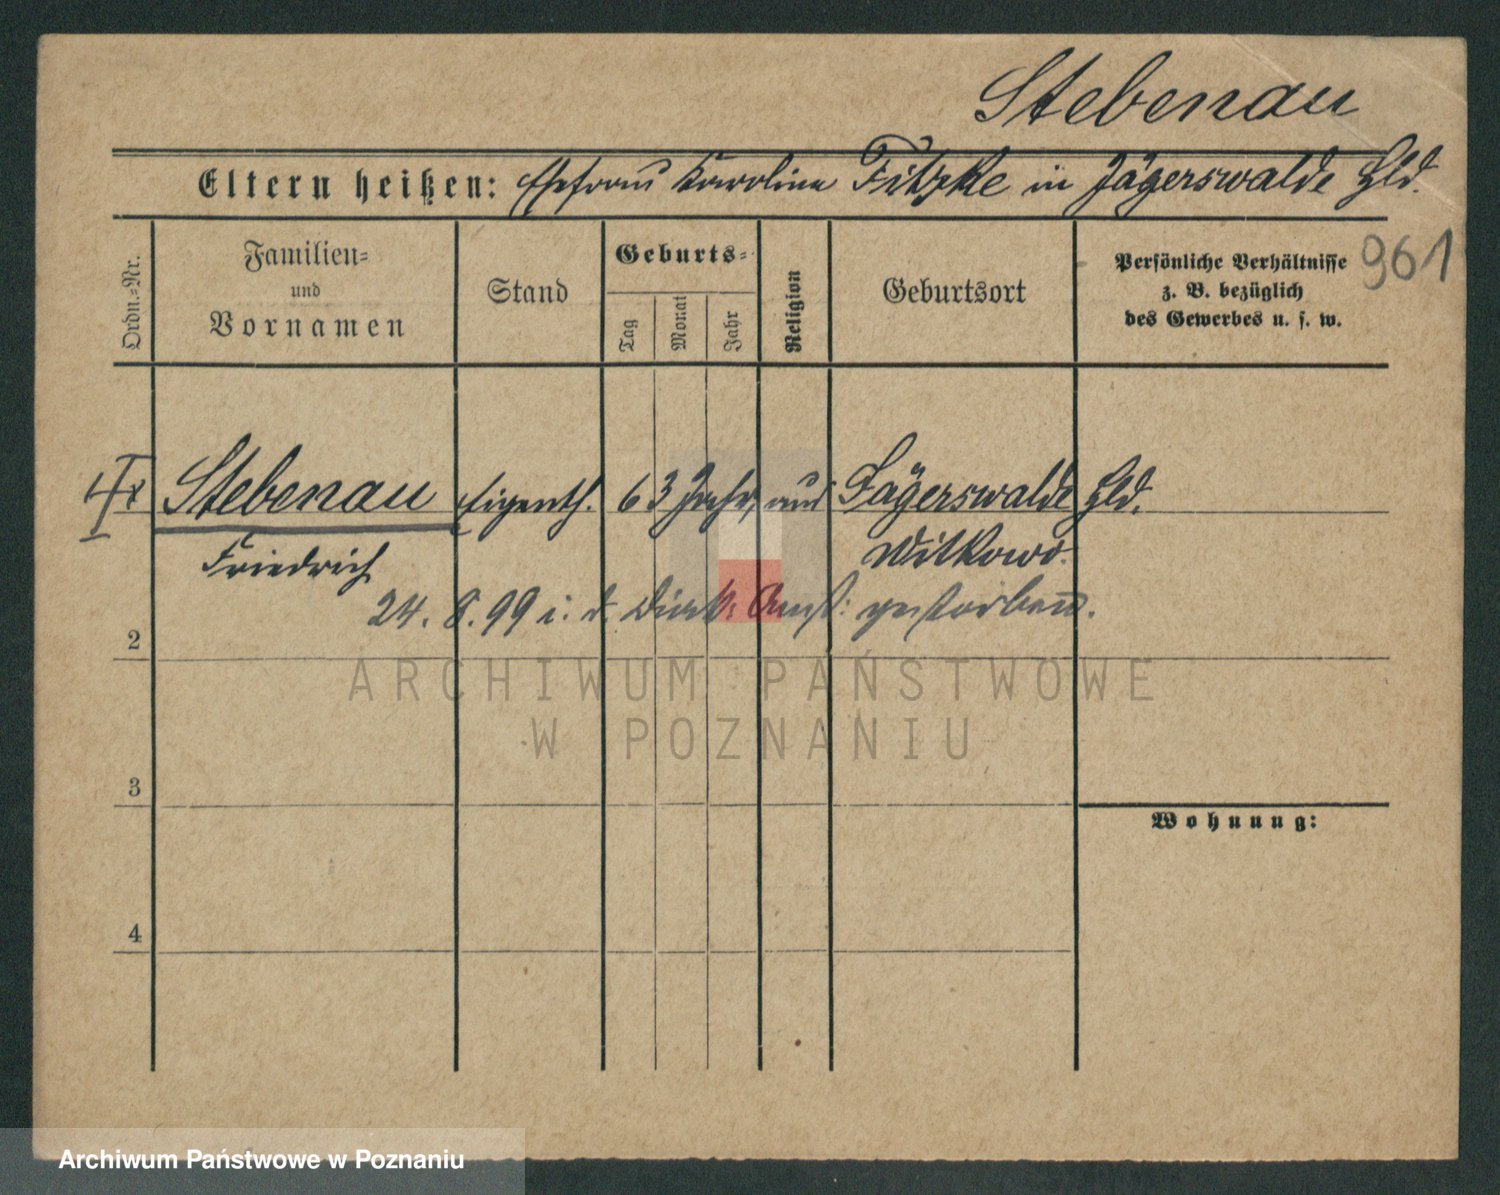 Stebenau
Eltern heißen: Ehefrau Karoline Fitzke in Jägerswalde Hld.
961
Ordn.-Nr.
Familien-
und
Vornamen
Stand
Geburts-
Tag
Monat
Jahr
Religion
Geburtsort
Persönliche Verhältnisse
z. B. bezüglich
des Gewerbes u. s. w.
Stebenau Eigenth. 63 Jahr, aus Jägerswalde Hld.
Friedrich Witkowo.
24. 8. 99 i. d. Diak. Anst: gestorben.
2
3
4
Wohnung:
ARCHIWUM PAŃSTWOWE
W POZNANIU
Archiwum Państwowe w Poznaniu